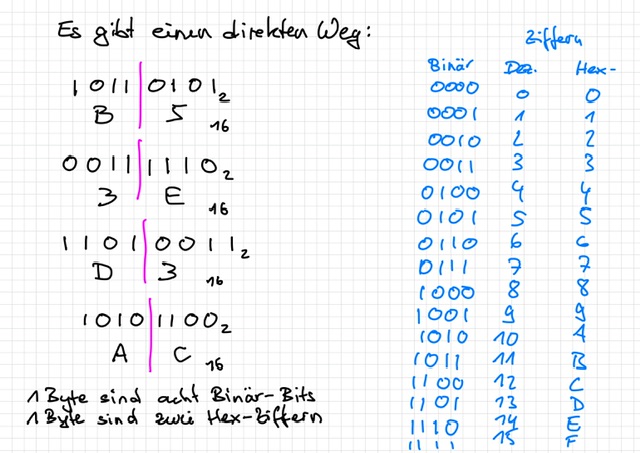 Es gibt einen direkten Weg:
1011 0101₂
B 5 ₁₆
0011 1110₂
3 E ₁₆
1101 0011₂
D 3 ₁₆
1010 1100₂
A C ₁₆
1 Byte sind acht Binär-Bits
1 Byte sind zwei Hex-Ziffern
Ziffern
Binär Dez. Hex-
0000 0 0
0001 1 1
0010 2 2
0011 3 3
0100 4 4
0101 5 5
0110 6 6
0111 7 7
1000 8 8
1001 9 9
1010 10 A
1011 11 B
1100 12 C
1101 13 D
1110 14 E
1111 15 F